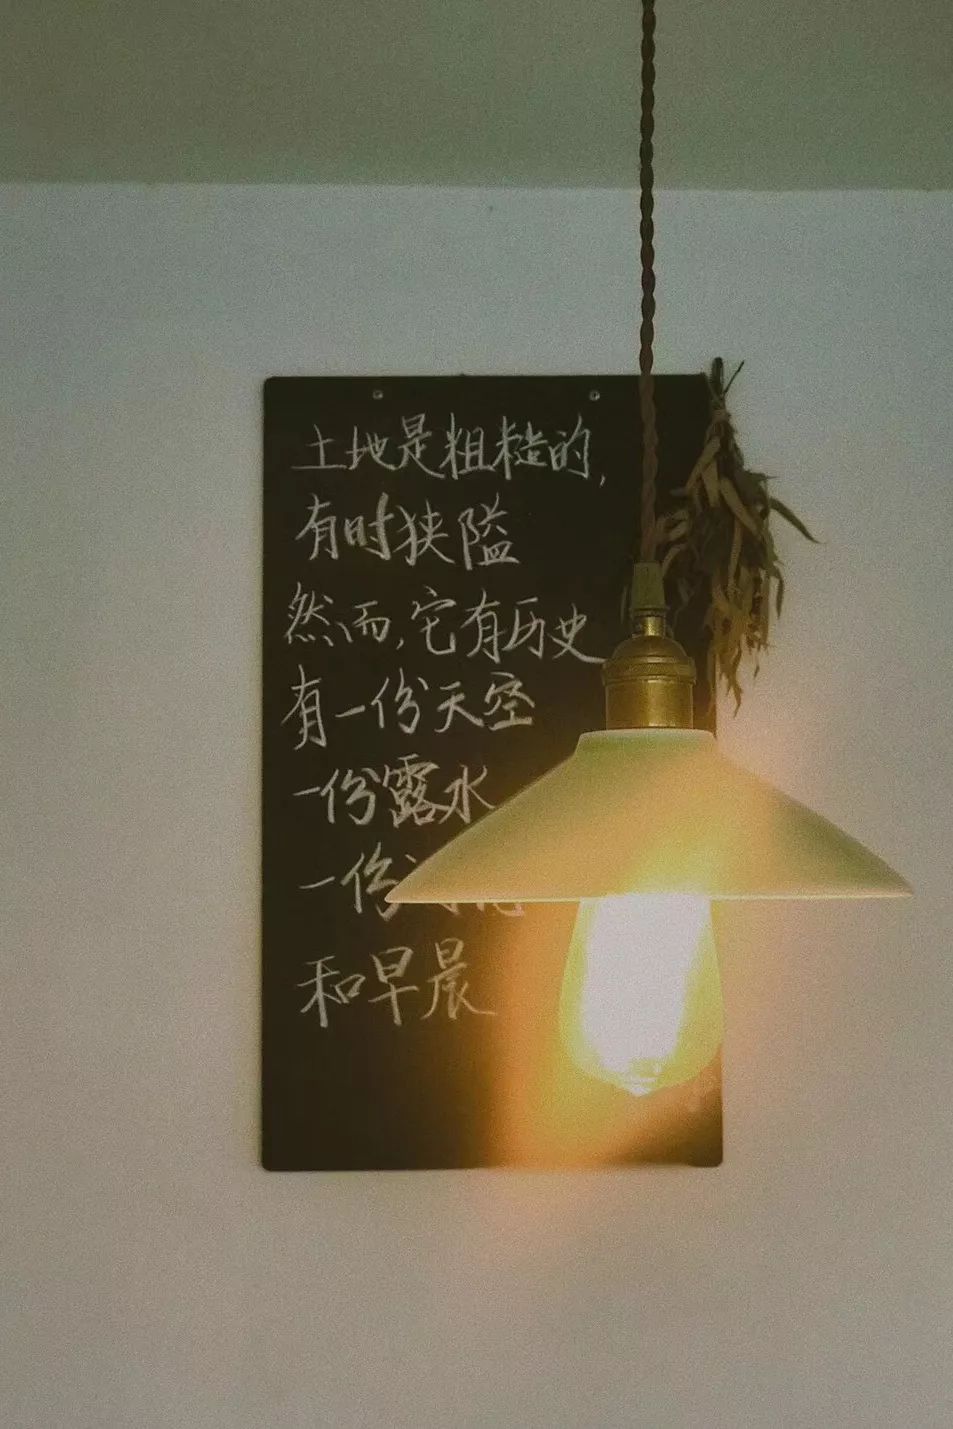 土地是粗糙的,
有时狭隘
然而,它有历史
有一份天空
一份露水
一份
和早晨